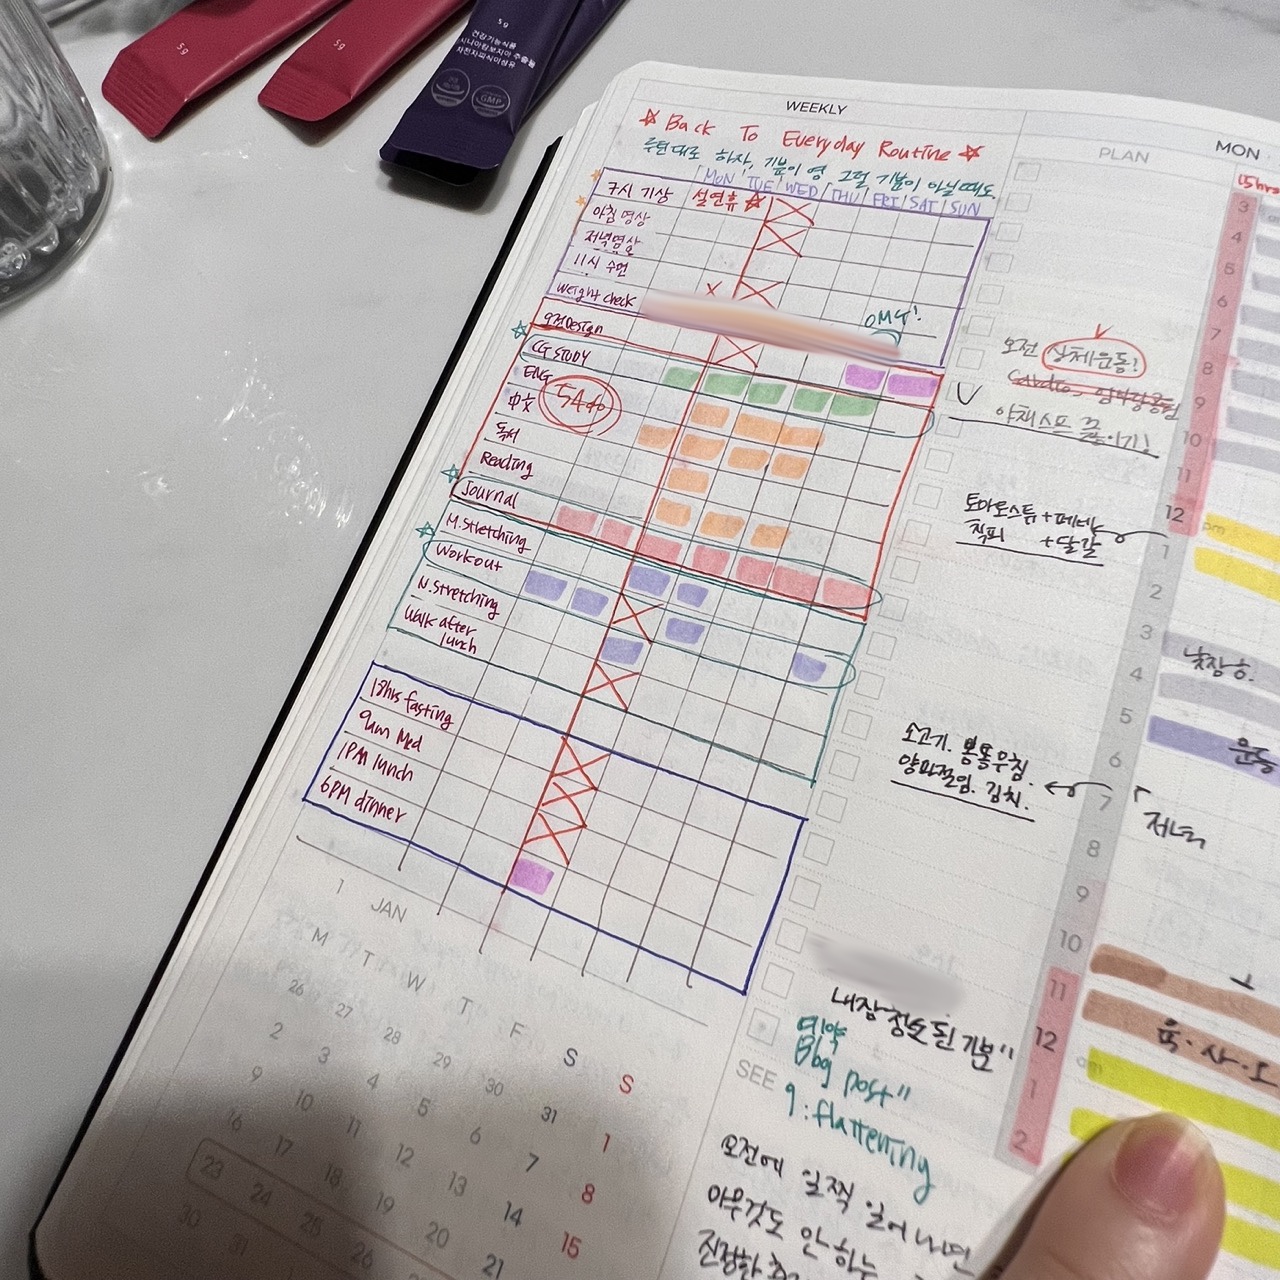 5g
5g
5g
건강기능식품
GMP
WEEKLY
☆ Back To Everyday Routine ☆
루틴대로 하자, 기분이 영 그럴 기분이 아닐 때도
MON TUE WED THU FRI SAT SUN
7시 기상 설연휴 ☆
아침 명상
저녁명상
11시 수면
weight check
OMG!
9전Design
CG STUDY
ENG
中文
독서
Reading
Journal
M.Stretching
Workout
N.Stretching
Walk after
lunch
18hrs fasting
9am Med
1PM lunch
6PM dinner
1
JAN
M T W T F S S
26 27 28 29 30 31 1
2 3 4 5 6 7 8
9 10 11 12 13 14 15
16 17 18 19 20 21
23 24 25 26
30 31
PLAN
MON
오전 상체운동!
Cardio,
야채스프 끓이기!
토마토스튜+페네
+달걀
소고기.
김치.
저녁
내장청소된 기분"
예약
Blog post"
9:flattening
SEE
오전에 일찍 일어나면
아무것도 안하는
15hrs
3
4
5
6
7
8
9
10
11
12
pm
1
2
3
4
5
6
7
8
9
10
11
12
am
1
2
낮잠
운동
육·사·